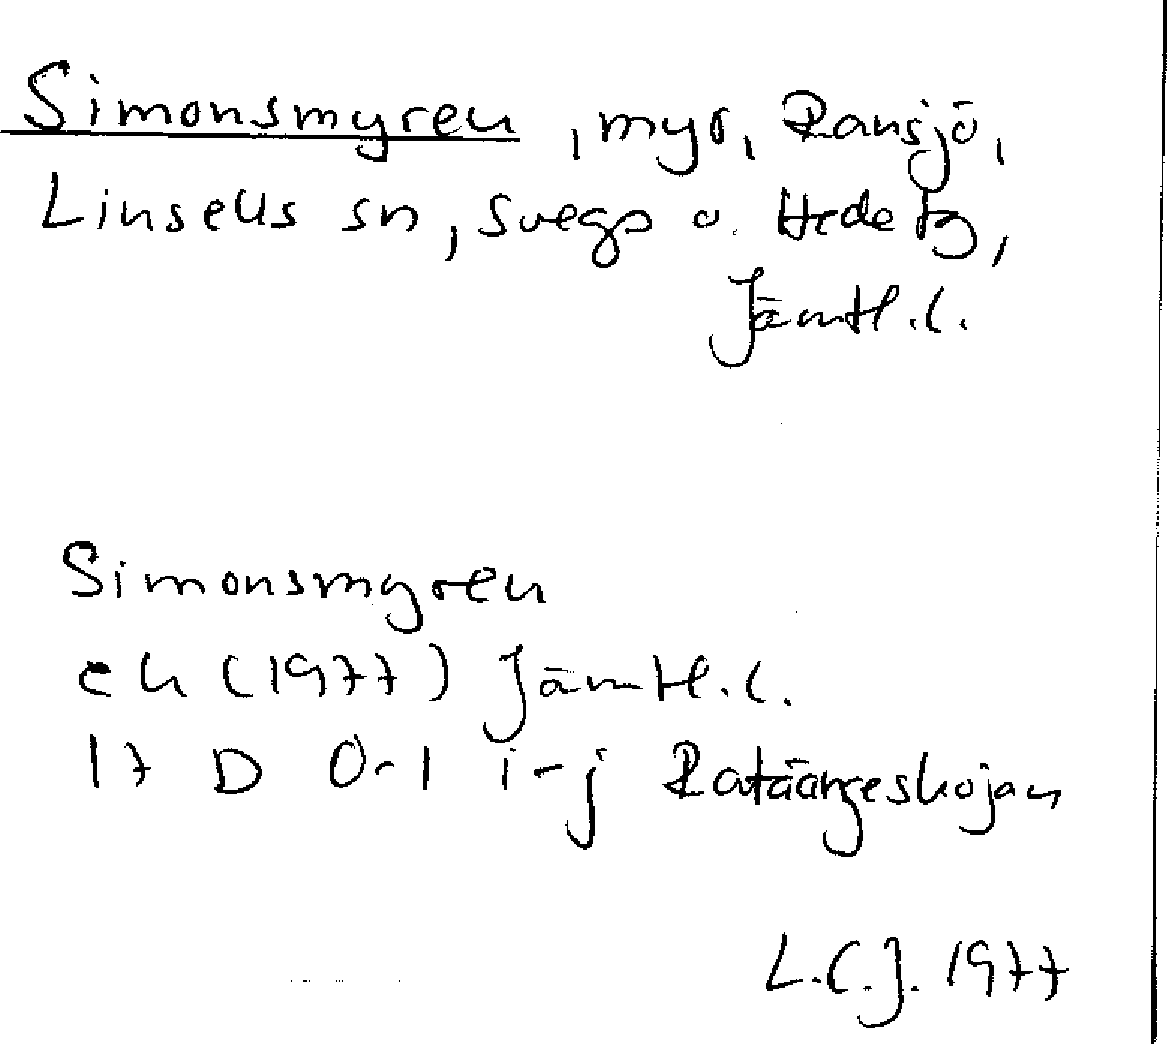 Simonsmyren, myr, Ransjö,
Linsells sn, Svegs o. Hede tg,
Jämtl.l.
Simonsmyren
ek (1977) Jämtl.l.
17 D 0-1 i-j Rataängeskojan
L.C.J. 1977